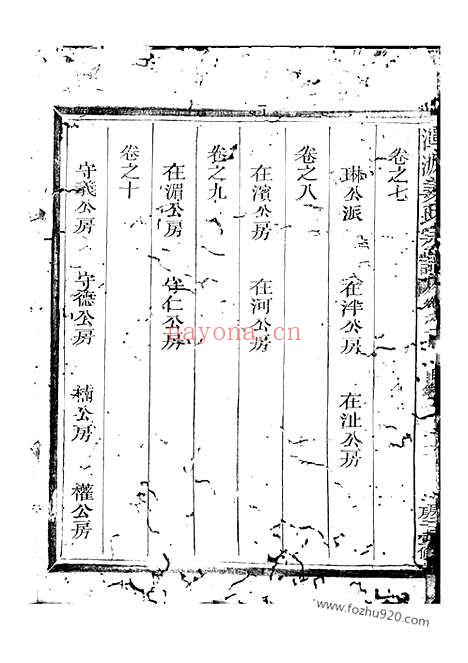 卷之七
琳公派 在泮公房 在沚公房
卷之八
在濱公房 在河公房
卷之九
在湄公房 守仁公房
卷之十
守義公房 守德公房 楠公房 權公房
nayona.cn
www.fozhu920.com